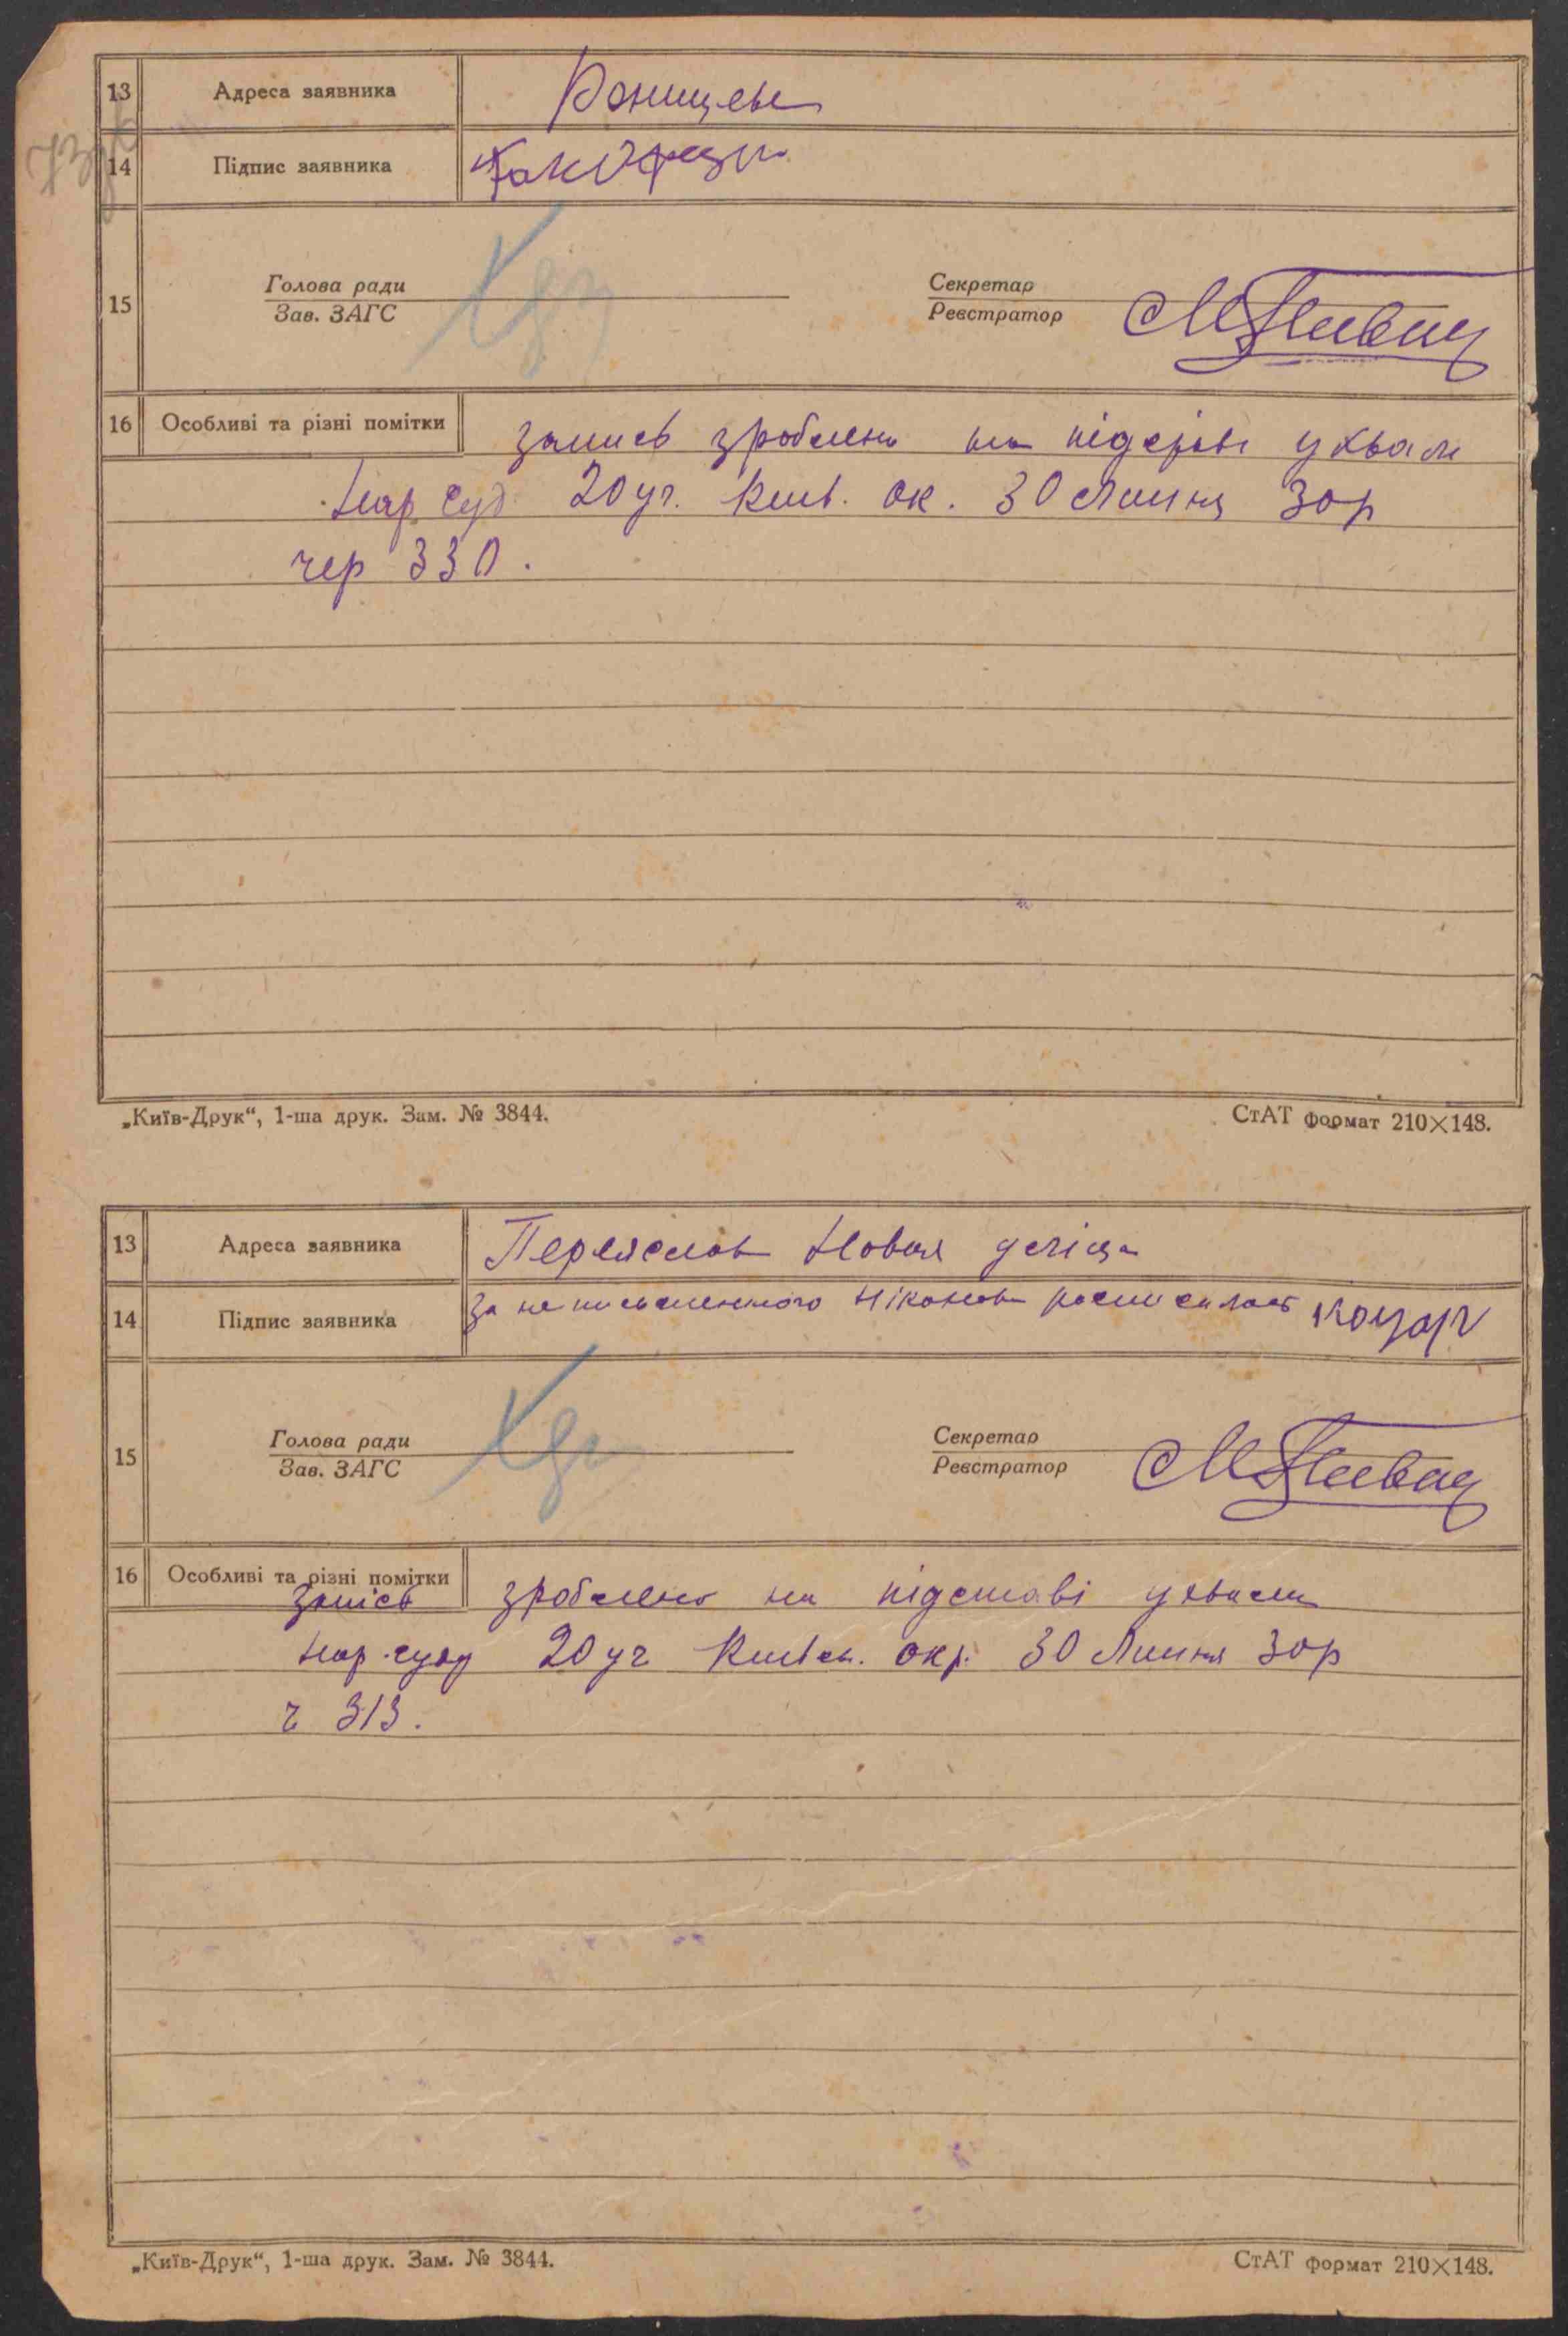 13 Адреса заявника
14 Підпис заявника
15 Голова ради Секретар
Зав. ЗАГС Реєстратор
16 Особливі та різні помітки запись зроблено на підставі ухвали
Нар суд 20 уч. Київ. ок. 30 Липня 30р
чер 330.
„Київ-Друк“, 1-ша друк. Зам. № 3844. СтАТ формат 210×148.
13 Адреса заявника Переяслов Новая уліца
14 Підпис заявника За неписьменного Ніконов росписалась Коцар
15 Голова ради Секретар
Зав. ЗАГС Реєстратор
16 Особливі та різні помітки
запісь зроблено на підставі ухвали
нар. суду 20 уч Київськ. окр. 30 Липня 30р
ч 313.
„Київ-Друк“, 1-ша друк. Зам. № 3844. СтАТ формат 210×148.